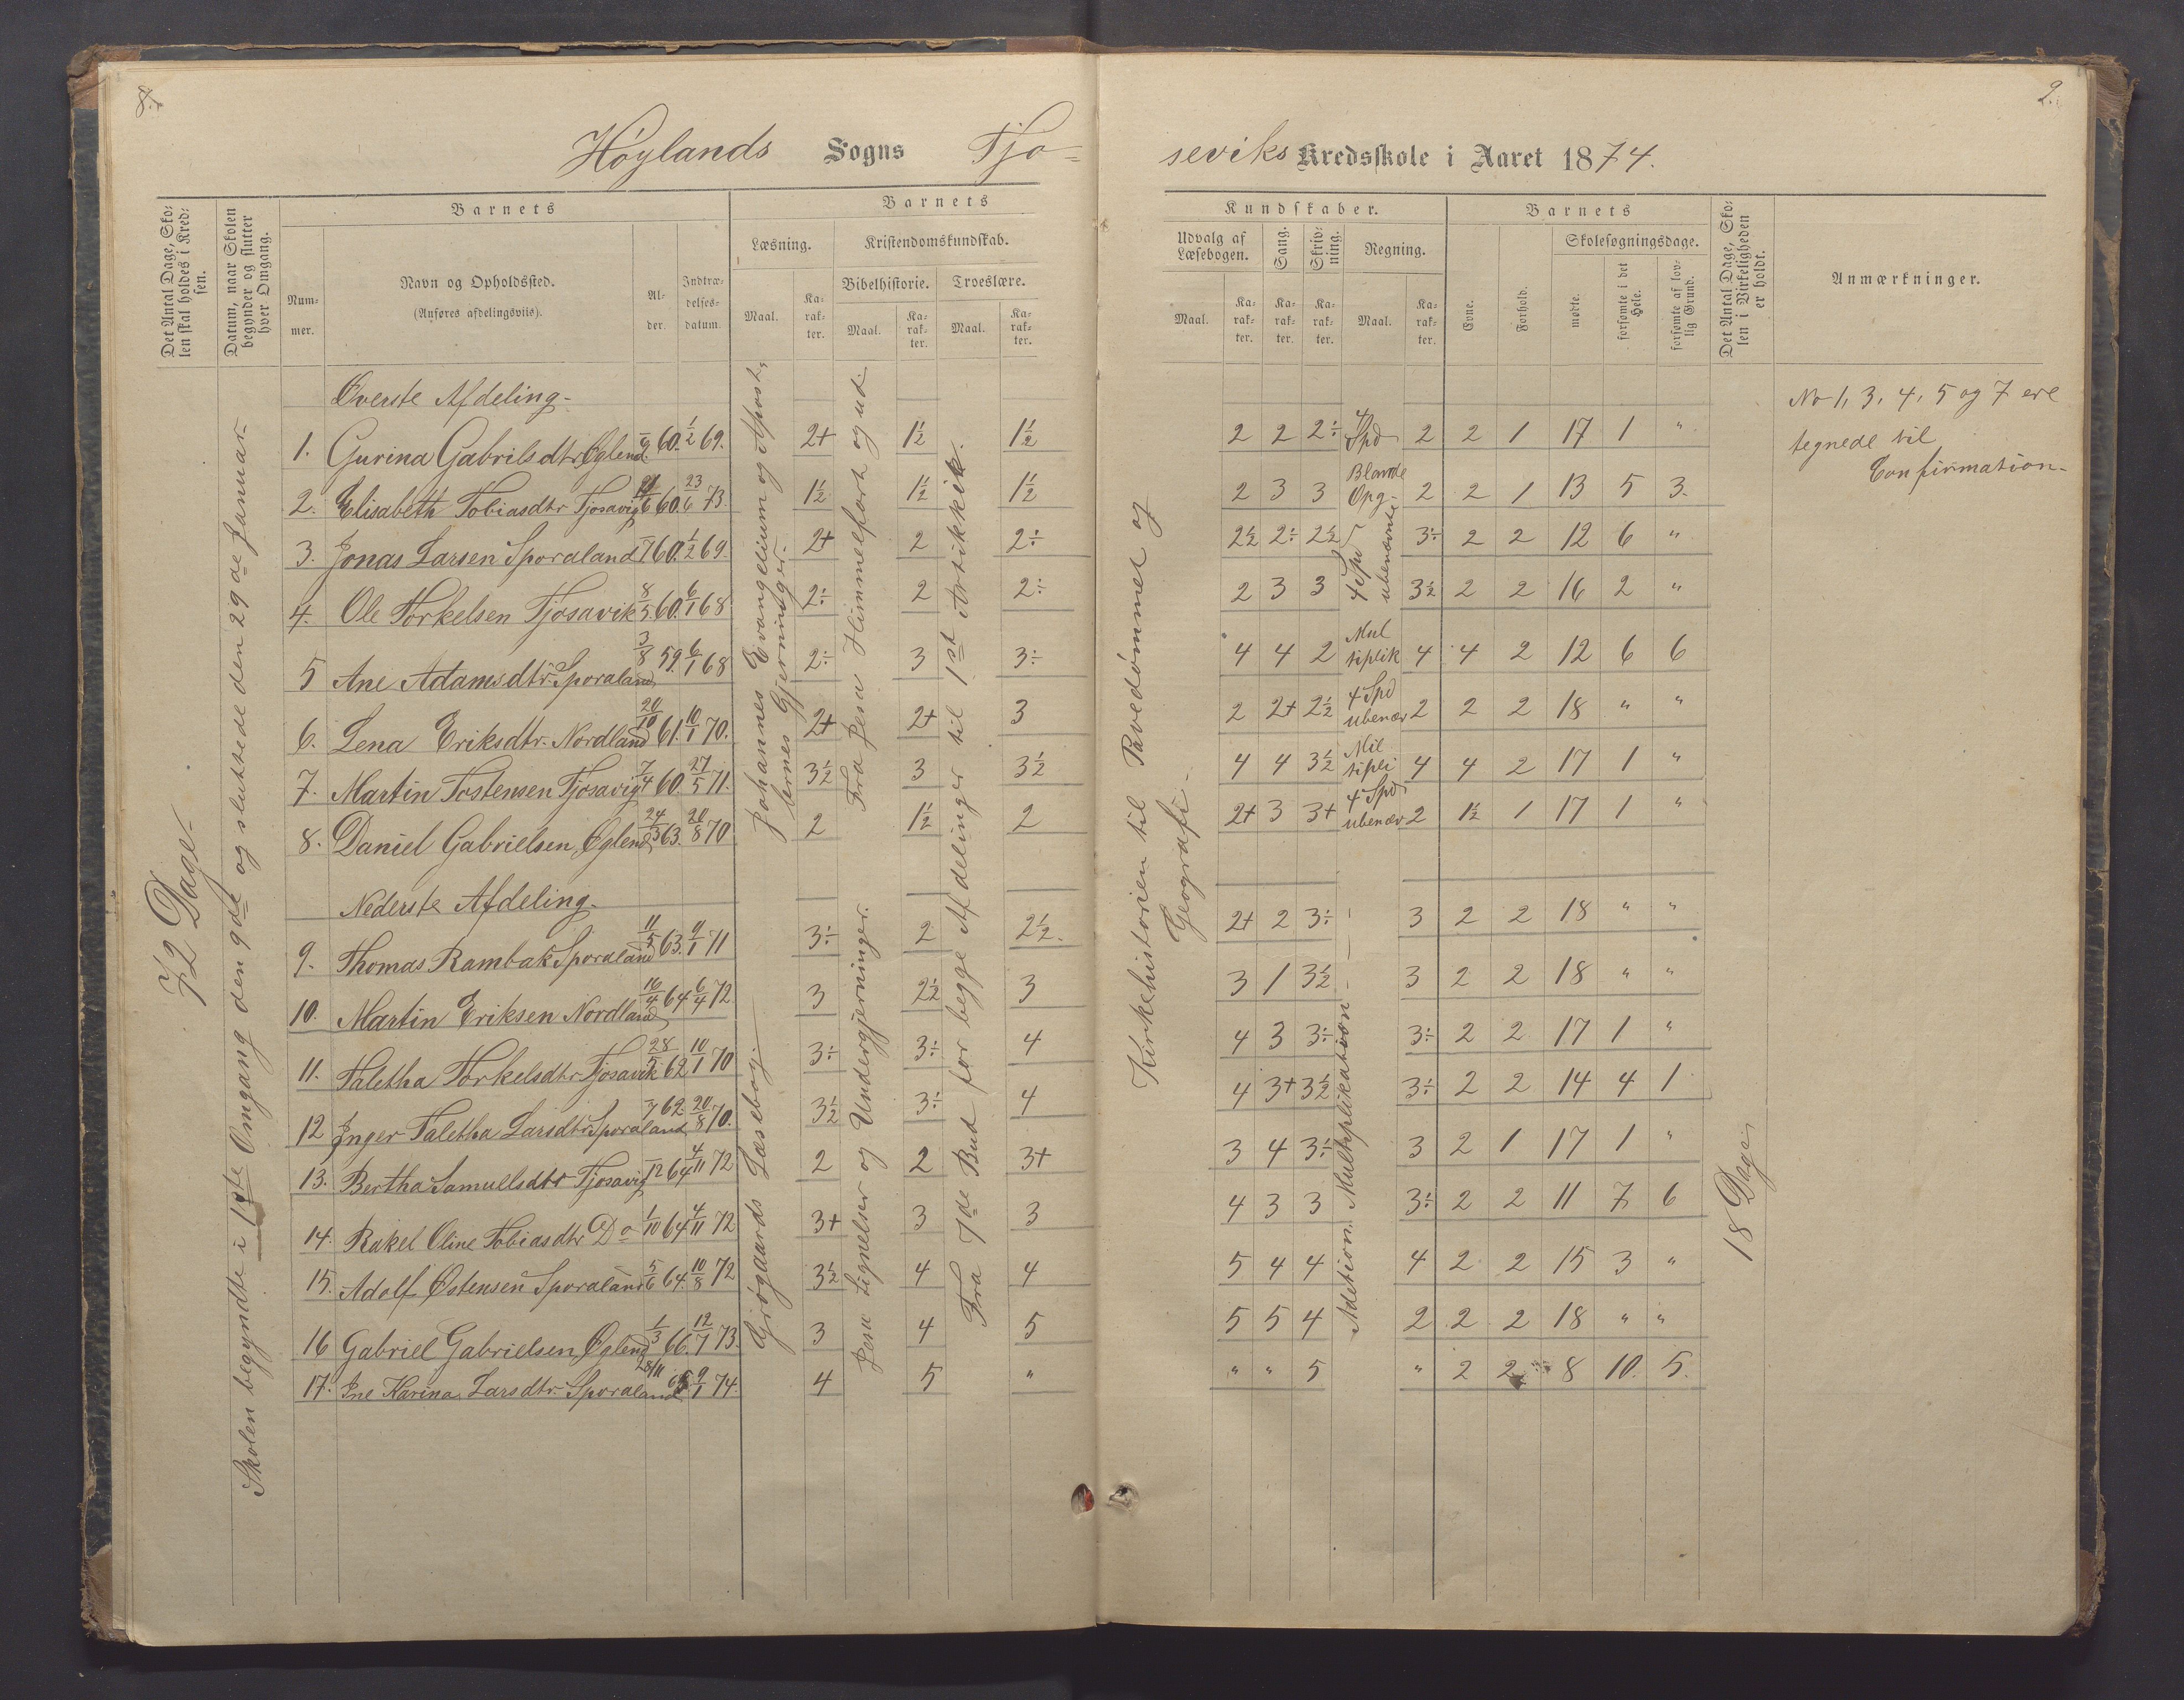 8.
2.
Höylands Sogns Tjo=
seviks Kredsskole i Aaret 1874.
Det Antal Dage, Skolen skal holdes i Kredsen.
Datum, naar Skolen begynder og slutter hver Omgang.
Barnets
Nummer.
Navn og Opholdssted.
(Anføres afdelingsviis).
Alder.
Indtrædelsesdatum.
Barnets
Læsning.
Maal.
Karakter.
Kristendomskundskab.
Bibelhistorie.
Maal.
Karakter.
Troeslære.
Maal.
Karakter.
Kundskaber.
Udvalg af Læsebogen.
Maal.
Karakter.
Sang.
Karakter.
Skrivning.
Karakter.
Regning.
Maal.
Karakter.
Barnets
Evne.
Forhold.
Skolesøgningsdage.
mødte.
forsømte i det Hele.
forsømte af lovlig Grund.
Det Antal Dage, Skolen i Virkeligheden er holdt.
Anmærkninger.
72 Dage
Skolen begyndte i 1ste Omgang den 9de og sluttede den 29de Januar
Johannes Evangelium og Apostlernes Gjerninger.
Grøgaards Læsebog
Fra Jesu Himmelfart og ud
Jesu Lignelser og Undergjerninger.
Fra 7de Bud for begge Afdelinger til 1st Artikkik.
Kirkehistorien til Pavedømmet og
Geografi
Adetion Multiplikation
18 Dage
Øverste Afdeling
1. Gurina Gabrilsdtr Øglend 60. 1/2 69. 2+ 1½ 1½ 2 2 2÷ 4 Spd 2 2 1 17 1 "
2. Elisabeth Tobiasdtr Tjosavig 60. 23/6 73. 1½ 1½ 1½ 2 3 3 Blande Opg 2 2 1 13 5 3
3. Jonas Larsen Sporaland 7 60. 1/2 69. 2+ 2 2÷ 2½ 2÷ 2½ 4 Spd ubenævnte 3÷ 2 2 12 6 "
4. Ole Torkelsen Tjosavik 8/5 60. 6/1 68 2÷ 2 2÷ 2 3 3 3½ 2 2 16 2 "
5 Ane Adamsdtr Sporaland 3/8 59. 6/1 68 2÷ 3 3÷ 4 4 2 Multiplik 4 4 2 12 6 6
6. Lena Eriksdtr. Nordland 20/10 61. 10/1 70. 2+ 2+ 3 2 2+ 2½ 4 Spd ubenæv 2 2 2 18 " "
7. Martin Tostensen Tjosavig 7/4 60. 27/5 71. 3½ 3 3½ 4 4 3½ Miltipli 4 4 2 17 1 "
8. Daniel Gabrielsen Øglend 24/3 63. 20/8 70 2 1½ 2 2+ 3 3+ 4 Spd ubenæv 2 1½ 1 17 1 "
Nederste Afdeling
9. Thomas Rambak Sporaland 11/5 63. 9/1 71 3÷ 2 2½. 2+ 2 3÷ 3 2 2 18 " "
10. Martin Eriksen Nordland 16/4 64 6/4 72 3 2½ 3 3 1 3½ 3 2 2 18 " "
11. Taletha Torkelsdtr Tjosavik 28/5 62 10/1 70 3÷ 3÷ 4 4 3 3÷ 3÷ 2 2 17 1 "
12 Inger Taletha Larsdtr Sporaland 7 62. 20/8 70. 3½ 3÷ 4 4 3+ 3½ 3÷ 2 2 14 4 1
13. Bertha Samuelsdtr Tjosavig 12 64 4/11 72 2 2 3+ 3 4 3÷ 3 2 1 17 1 "
14. Rakel Oline Tobiasdtr Do 1/10 64 4/11 72 3+ 3 3 4 3 3 3÷ 2 2 11 7 6
15. Adolf Østensen Sporaland 5/6 64. 10/8 72 3½ 4 4 5 4 4 4 2 2 15 3 "
16 Gabriel Gabrielsen Øglend 1/3 66. 12/7 73. 3 4 5 5 5 4 2 2 2 18 " "
17. Ine Karina Larsdtr. Sporaland 28/11 65 9/1 74. 4 5 " " " 5 " 2 2 8 10. 5.
No 1, 3, 4, 5 og 7 ere
tegnede til
Confirmation